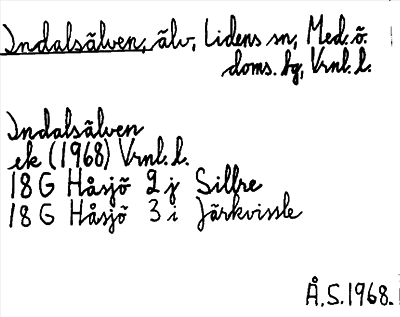 Indalsälven, älv, Lidens sn, Med. ö.
doms. hg, Vrnl. l.
Indalsälven
ek (1968) Vrnl. l.
18 G Håsjö 2 j Sillre
18 G Håsjö 3 i Järkvissle
Å. S. 1968.